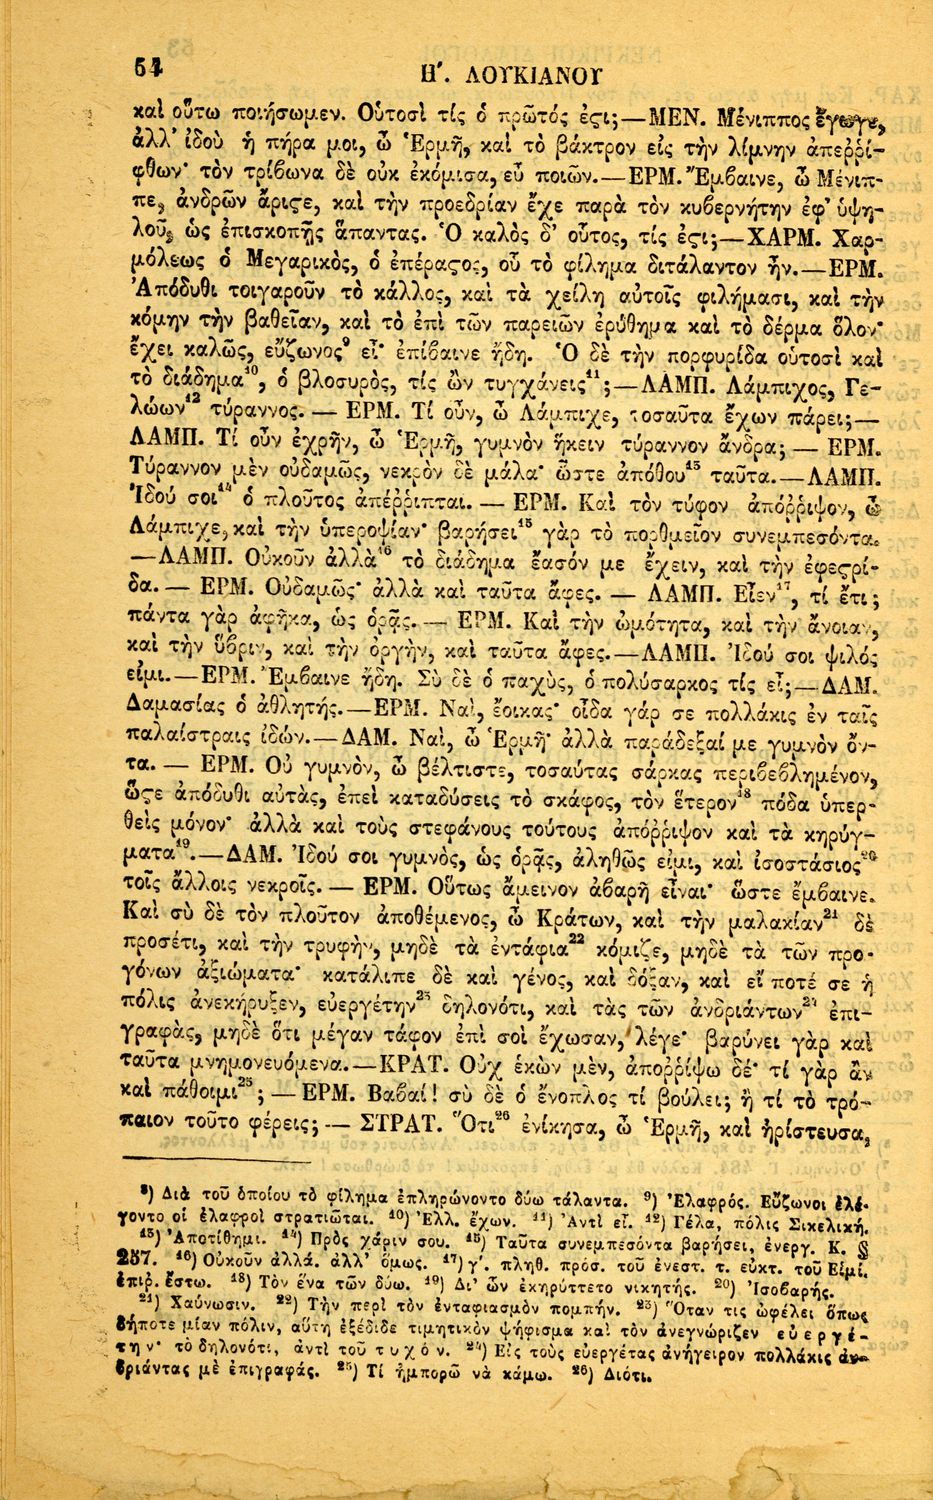 54
Η΄. ΛΟΥΚΙΑΝΟΥ
καὶ οὕτω ποιήσωμεν. Οὑτοσὶ τίς ὁ πρῶτός ἐςι;—ΜΕΝ. Μένιππος ἔγωγε,
ἀλλ᾽ ἰδοὺ ἡ πήρα μοι, ὦ Ἑρμῆ, καὶ τὸ βάκτρον εἰς τὴν λίμνην ἀπεῤῥί-
φθων· τὸν τρίβωνα δὲ οὐκ ἐκόμισα, εὖ ποιῶν.—ΕΡΜ. Ἔμβαινε, ὦ Μένιπ-
πε, ἀνδρῶν ἄριςε, καὶ τὴν προεδρίαν ἔχε παρὰ τὸν κυβερνήτην ἐφ᾽ ὑψη-
λοῦ, ὡς ἐπισκοπῇς ἅπαντας. Ὁ καλὸς δ᾽ οὗτος, τίς ἐςι;—ΧΑΡΜ. Χαρ-
μόλεως ὁ Μεγαρικὸς, ὁ ἐπέραςος, οὗ τὸ φίλημα διτάλαντον ἦν.—ΕΡΜ.
Ἀπόδυθι τοιγαροῦν τὸ κάλλος, καὶ τὰ χείλη αὐτοῖς φιλήμασι, καὶ τὴν
κόμην τὴν βαθεῖαν, καὶ τὸ ἐπὶ τῶν παρειῶν ἐρύθημα καὶ τὸ δέρμα ὅλον·
ἔχει καλῶς, εὔζωνος⁹ εἶ· ἐπίβαινε ἤδη. Ὁ δὲ τὴν πορφυρίδα οὑτοσὶ καὶ
τὸ διάδημα¹⁰, ὁ βλοσυρὸς, τίς ὢν τυγχάνεις¹¹;—ΛΑΜΠ. Λάμπιχος, Γε-
λώων¹² τύραννος. — ΕΡΜ. Τί οὖν, ὦ Λάμπιχε, τοσαῦτα ἔχων πάρει;—
ΛΑΜΠ. Τί οὖν ἐχρῆν, ὦ Ἑρμῆ, γυμνὸν ἥκειν τύραννον ἄνδρα; — ΕΡΜ.
Τύραννον μὲν οὐδαμῶς, νεκρὸν δὲ μάλα· ὥστε ἀπόθου¹³ ταῦτα.—ΛΑΜΠ.
Ἰδού σοι¹⁴ ὁ πλοῦτος ἀπέῤῥιπται. — ΕΡΜ. Καὶ τὸν τύφον ἀπόῤῥιψον, ὦ
Λάμπιχε, καὶ τὴν ὑπεροψίαν· βαρήσει¹⁵ γὰρ τὸ πορθμεῖον συνεμπεσόντα.
—ΛΑΜΠ. Οὐκοῦν ἀλλὰ¹⁶ τὸ διάδημα ἔασόν με ἔχειν, καὶ τὴν ἐφεςρί-
δα. — ΕΡΜ. Οὐδαμῶς· ἀλλὰ καὶ ταῦτα ἄφες. — ΛΑΜΠ. Εἶεν¹⁷, τί ἔτι;
πάντα γὰρ ἀφῆκα, ὡς ὁρᾷς. — ΕΡΜ. Καὶ τὴν ὠμότητα, καὶ τὴν ἄνοιαν,
καὶ τὴν ὕβριν, καὶ τὴν ὀργὴν, καὶ ταῦτα ἄφες.—ΛΑΜΠ. Ἰδού σοι ψιλός
εἰμι.—ΕΡΜ. Ἔμβαινε ἤδη. Σὺ δὲ ὁ παχὺς, ὁ πολύσαρκος τίς εἶ;—ΔΑΜ.
Δαμασίας ὁ ἀθλητής.—ΕΡΜ. Ναὶ, ἔοικας· οἶδα γάρ σε πολλάκις ἐν ταῖς
παλαίστραις ἰδών.—ΔΑΜ. Ναὶ, ὦ Ἑρμῆ· ἀλλὰ παράδεξαί με γυμνὸν ὄν-
τα. — ΕΡΜ. Οὐ γυμνὸν, ὦ βέλτιστε, τοσαύτας σάρκας περιβεβλημένον,
ὥςε ἀπόδυθι αὐτὰς, ἐπεὶ καταδύσεις τὸ σκάφος, τὸν ἕτερον¹⁸ πόδα ὑπερ-
θεὶς μόνον· ἀλλὰ καὶ τοὺς στεφάνους τούτους ἀπόῤῥιψον καὶ τὰ κηρύγ-
ματα¹⁹.—ΔΑΜ. Ἰδού σοι γυμνὸς, ὡς ὁρᾷς, ἀληθῶς εἰμι, καὶ ἰσοστάσιος²⁰
τοῖς ἄλλοις νεκροῖς. — ΕΡΜ. Οὕτως ἄμεινον ἀβαρῆ εἶναι· ὥστε ἔμβαινε.
Καὶ σὺ δὲ τὸν πλοῦτον ἀποθέμενος, ὦ Κράτων, καὶ τὴν μαλακίαν²¹ δὲ
προσέτι, καὶ τὴν τρυφὴν, μηδὲ τὰ ἐντάφια²² κόμιζε, μηδὲ τὰ τῶν προ-
γόνων ἀξιώματα· κατάλιπε δὲ καὶ γένος, καὶ δόξαν, καὶ εἴ ποτέ σε ἡ
πόλις ἀνεκήρυξεν, εὐεργέτην²³ δηλονότι, καὶ τὰς τῶν ἀνδριάντων²⁴ ἐπι-
γραφὰς, μηδὲ ὅτι μέγαν τάφον ἐπὶ σοὶ ἔχωσαν, λέγε· βαρύνει γὰρ καὶ
ταῦτα μνημονευόμενα.—ΚΡΑΤ. Οὐχ ἑκὼν μὲν, ἀποῤῥίψω δέ· τί γὰρ ἂν
καὶ πάθοιμι²⁵; — ΕΡΜ. Βαβαί! σὺ δὲ ὁ ἔνοπλος τί βούλει; ἢ τί τὸ τρό-
παιον τοῦτο φέρεις; — ΣΤΡΑΤ. Ὅτι²⁶ ἐνίκησα, ὦ Ἑρμῆ, καὶ ἠρίστευσα,
⁸) Διὰ τοῦ ὁποίου τὸ φίλημα ἐπληρώνοντο δύω τάλαντα. ⁹) Ἐλαφρός. Εὔζωνοι ἐλέ-
γοντο οἱ ἐλαφροὶ στρατιῶται. ¹⁰) Ἐλλ. ἔχων. ¹¹) Ἀντὶ εἶ. ¹²) Γέλα, πόλις Σικελική.
¹³) Ἀποτίθημι. ¹⁴) Πρὸς χάριν σου. ¹⁵) Ταῦτα συνεμπεσόντα βαρήσει, ἐνεργ. Κ. §
257. ¹⁶) Οὐκοῦν ἀλλά. ἀλλ᾽ ὅμως. ¹⁷) γ΄. πληθ. πρόσ. τοῦ ἐνεστ. τ. εὐκτ. τοῦ Εἰμί.
ἐπιῤ. ἔστω. ¹⁸) Τὸν ἕνα τῶν δύω. ¹⁹) Δι᾽ ὧν ἐκηρύττετο νικητής. ²⁰) Ἰσοβαρής.
²¹) Χαύνωσιν. ²²) Τὴν περὶ τὸν ἐνταφιασμὸν πομπήν. ²³) Ὅταν τις ὠφέλει ὅπως
δήποτε μίαν πόλιν, αὕτη ἐξέδιδε τιμητικὸν ψήφισμα καὶ τὸν ἀνεγνώριζεν εὐεργέ-
την· τὸ δηλονότι, ἀντὶ τοῦ τυχόν. ²⁴) Εἰς τοὺς εὐεργέτας ἀνήγειρον πολλάκις ἀν-
δριάντας μὲ ἐπιγραφάς. ²⁵) Τί ἠμπορῶ νὰ κάμω. ²⁶) Διότι.